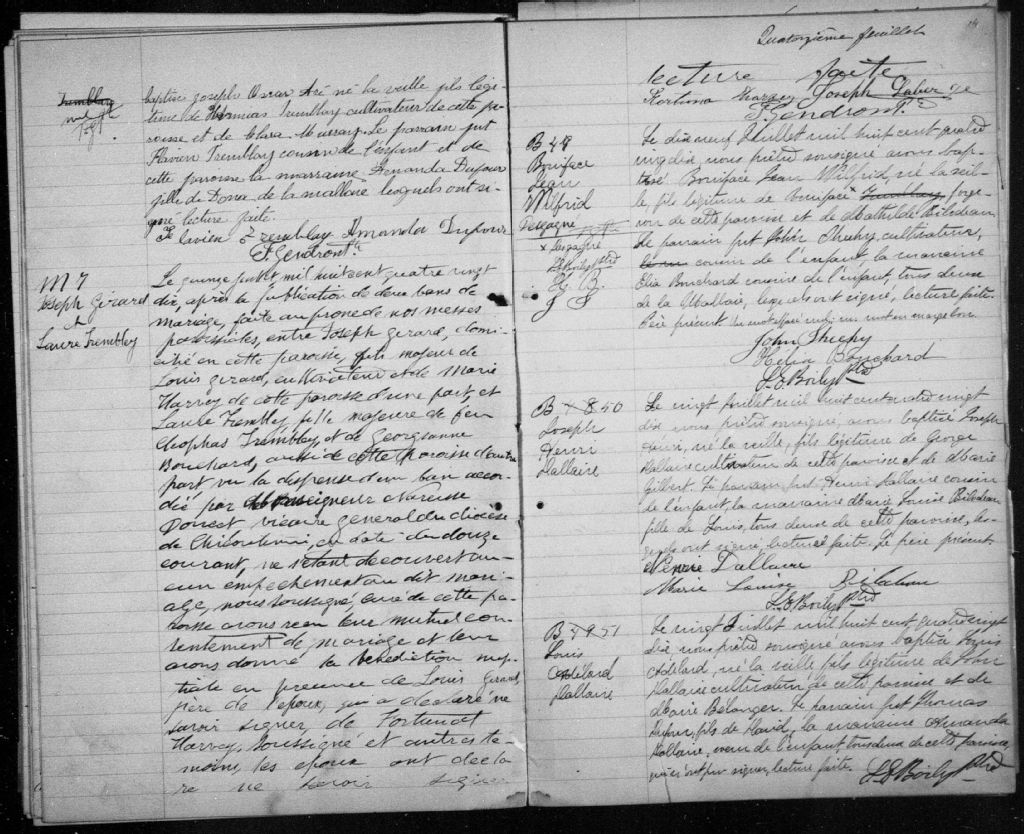 Tremblay
baptisé Joseph Oscar né la veille fils légi-
time de Thomas Tremblay cultivateur de cette pa-
roisse et de Clara Murray. Le parrain fut
Flavien Tremblay cousin de l'enfant et de
cette paroisse la marraine Amanda Dufour
fille de de la malbaie lesquels ont si-
gné lecture faite.
Flavien Tremblay Amanda Dufour
F. Gendron Ptre
M 7
Joseph Girard
&
Laure Tremblay
Le quinze juillet mil huit cent quatre vingt
dix, après la publication de deux bans de
mariage, faite au prone de nos messes
paroissiales, entre Joseph Girard, domi-
cilié en cette paroisse, fils majeur de
Louis Girard, cultivateur et de Marie
Harvey de cette paroisse d'une part, et
Laure Tremblay, fille majeure de feu
Cléophas Tremblay, et de Georgianne
Bouchard, aussi de cette paroisse d'autre
part vu la dispense d'un ban accor-
dée par Monseigneur Narcisse
Doucet, vicaire général du diocèse
de Chicoutimi, en date du douze
courant, ne s'étant découvert au-
cun empechement au dit mari-
age, nous soussigné, curé de cette pa-
roisse avons reçu leur mutuel con-
sentement de mariage et leur
avons donné la bénédiction nup-
tiale en présence de Louis Girard,
père de l'époux, qui a déclaré ne
savoir signer, de Fortunat
Harvey, soussigné et autres té-
moins, les époux ont décla
ré ne savoir signer
Quatorzième feuillet
14
lecture faite
Harvey Joseph
F. Gendron Ptre
B 49
Boniface
Jean
Wilfrid
Degagné
x Degagné
L. E. Boily Ptre
Le dix neuf Juillet mil huit cent quatre
vingt dix, nous prêtre soussigné avons bap-
tisé Boniface Jean Wilfrid, né la veil-
le, fils légitime de Boniface x Tremblay, forge-
ron de cette paroisse et de Mathilde Bilodeau.
Le parrain fut John Shuhy, cultivateur,
cousin de l'enfant la marraine
Elia Bouchard cousine de l'enfant, tous deux
de la Malbaie, lesquels ont signé, lecture faite.
Père présent. un mot en marge bon.
John Shuhy
Bouchard
L. E. Boily Ptre
B 50
Joseph
Henri
Dallaire
Le vingt Juillet mil huit cent quatre vingt
dix nous prêtre soussigné, avons baptisé Joseph
Henri, né la veille, fils légitime de George
Dallaire cultivateur de cette paroisse et de Marie
Gilbert. Le parrain fut Henri Dallaire cousin
de l'enfant, la marraine Marie Louise Bilodeau
fille de Louis, tous deux de cette paroisse, les-
quels ont signé, lecture faite. Le père présent.
Henri Dallaire
Marie Louise Bilodeau
L. E. Boily Ptre
B 51
Louis
Adélard
Dallaire
Le vingt Juillet mil huit cent quatre vingt
dix nous prêtre soussigné avons baptisé Louis
Adélard, né la veille, fils légitime de
Dallaire cultivateur de cette paroisse et de
Marie Bélanger. Le parrain fut Thomas
fils de David, la marraine Amanda
Dallaire, soeur de l'enfant tous deux de cette paroisse,
qui n'ont pu signer, lecture faite. L. E. Boily Ptre